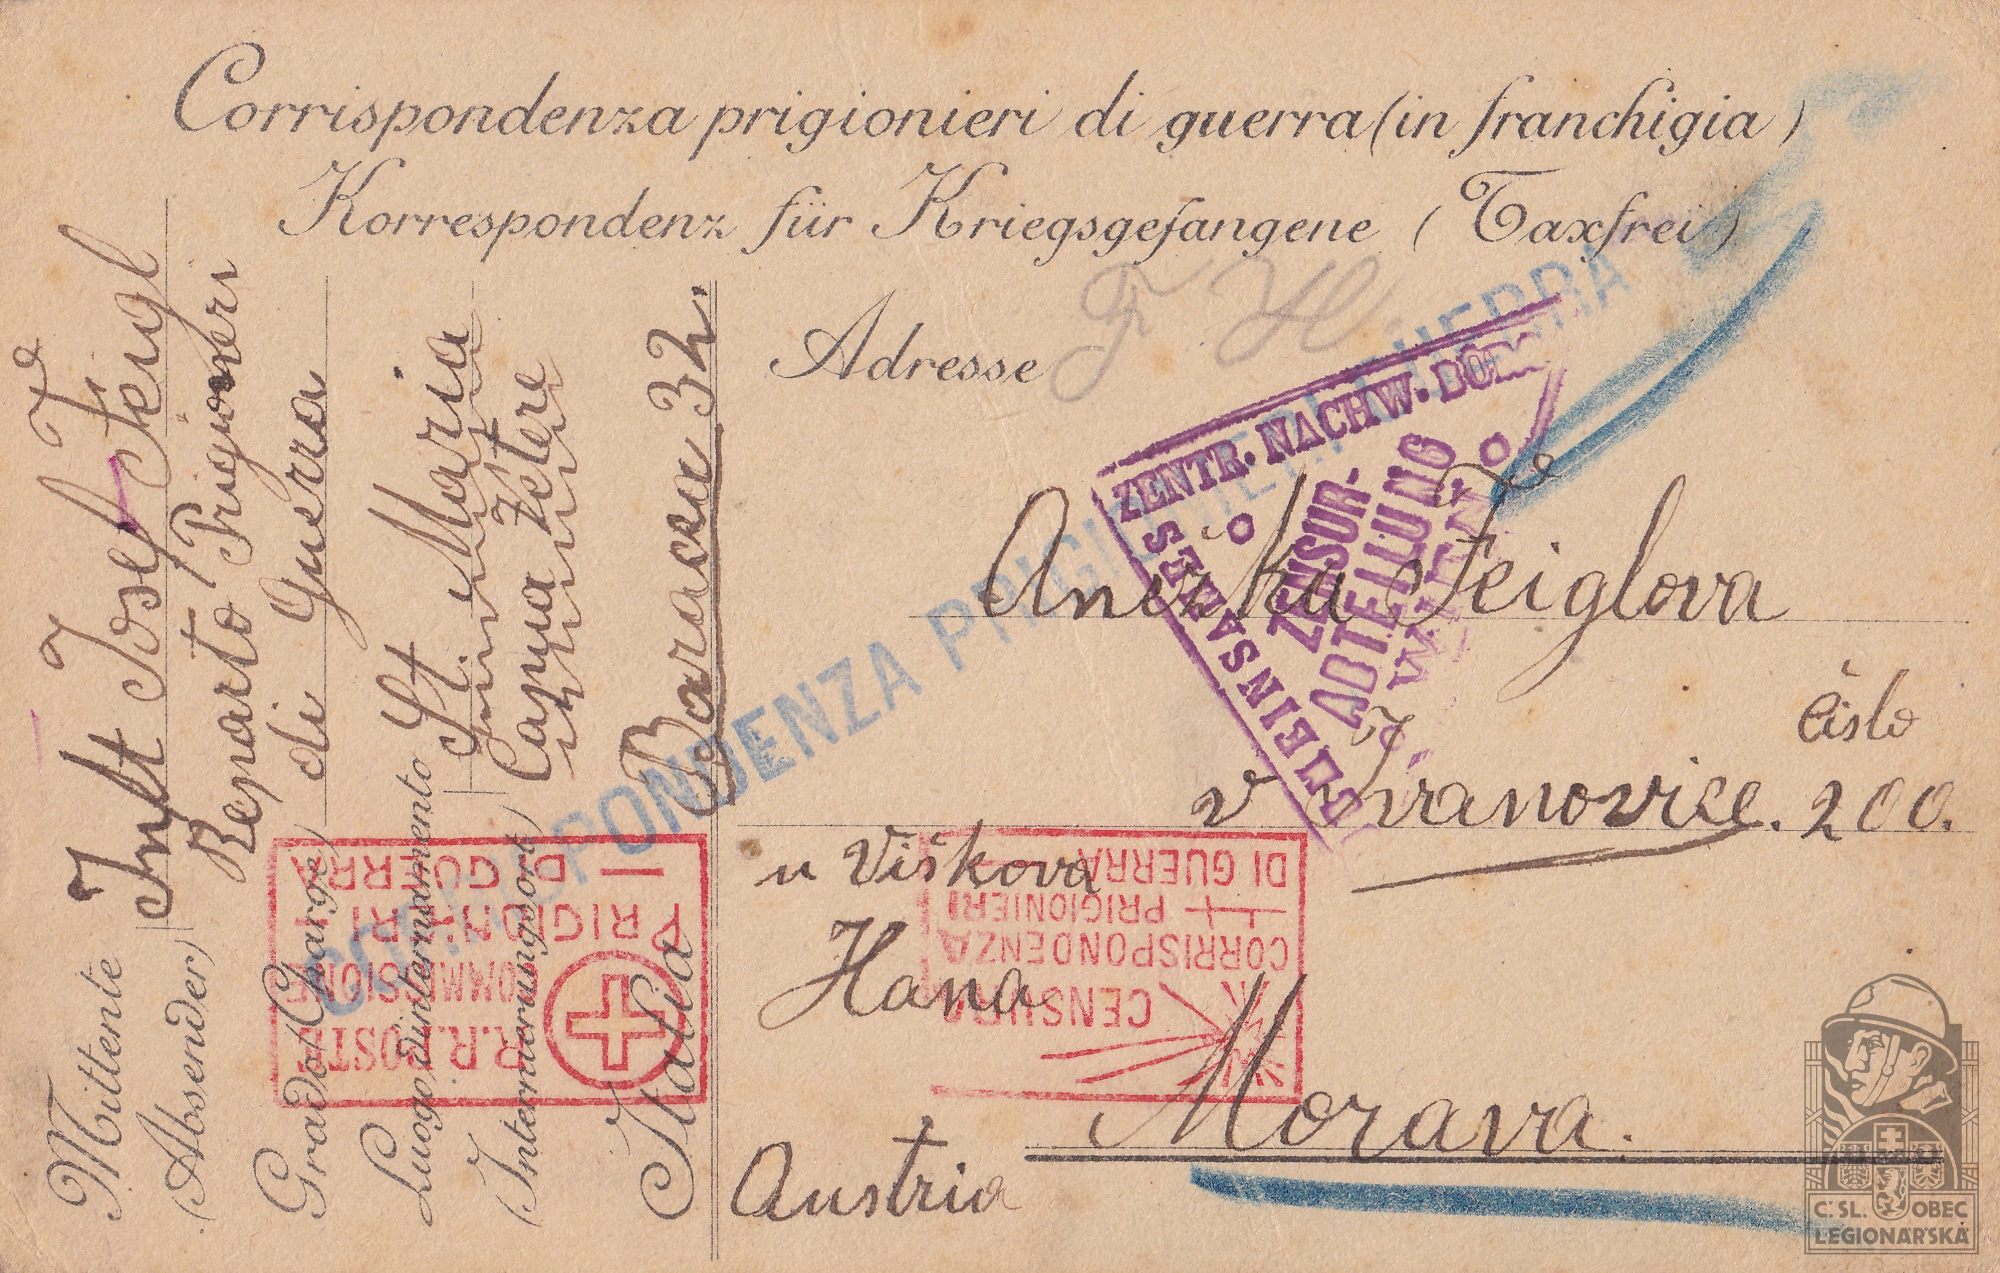 Corrispondenza prigionieri di guerra (in franchigia)
Korrespondenz für Kriegsgefangene (Taxfrei)
Adresse
F. H.
Anežka Feiglova
číslo
v Ivanovice. 200.
u Viškova
Hana
Morava.
Austria
Mittente
(Absender)
Inft Josef Feigl
Reparto Prigioneri
Grado (Charge)
di Guerra
Luogo d'internamento
St. Maria
(Internierungsort)
Capua Vetere
Italia
Baracca 32.
CORRISPONDENZA PRIGIONIERI GUERRA
ZENTR. NACHW. BÜRO
ZENSUR-
ABTEILUNG
WIEN
R.R. POSTE
COMMISSIONE
PRIGIONIERI
DI GUERRA
CENSURA
CORRISPONDENZA
PRIGIONIERI
DI GUERRA
Č. SL. OBEC
LEGIONÁŘSKÁ